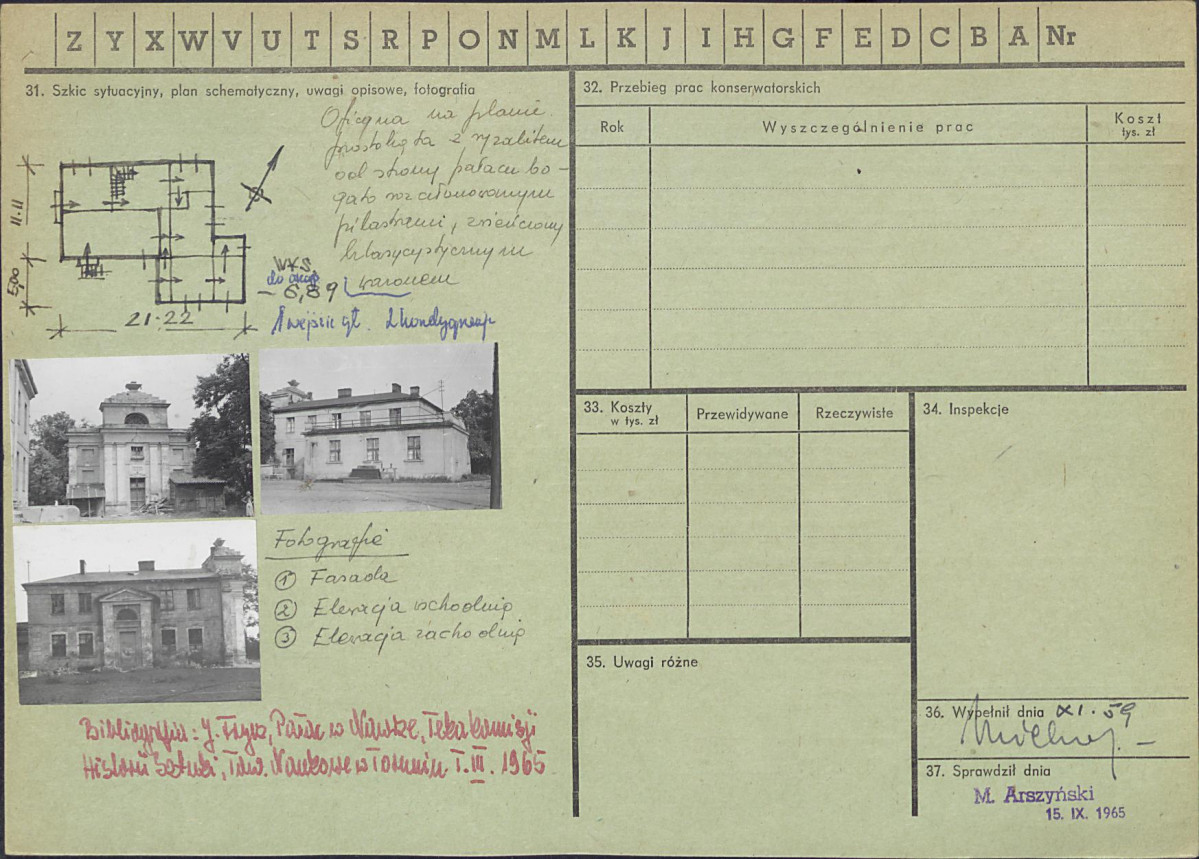 Z Y X W V U T S R P O N M L K J I H G F E D C B A Nr
31. Szkic sytuacyjny, plan schematyczny, uwagi opisowe, fotografia
Oficyna na planie
prostokąta z ryzalitem
od strony pałacu bo-
gato rozczłonowanym
pilastrami, zwieńczony
klasycystycznym
wazonem
11.11
21.22
WKS
do okap
6,89
1 wejście gł. 2 kondygnacje
Fotografie
1 Fasada
2 Elewacja wschodnia
3 Elewacja zachodnia
Bibliografia: J. Frycz, Pałac w Nawrze, Teka Komisji
Historii Sztuki, Tow. Naukowe w Toruniu T. III. 1965
32. Przebieg prac konserwatorskich
Rok
Wyszczególnienie prac
Koszt
tys. zł
33. Koszty
w tys. zł
Przewidywane
Rzeczywiste
34. Inspekcje
35. Uwagi różne
36. Wypełnił dnia XI. 59
37. Sprawdził dnia
M. Arszyński
15. IX. 1965